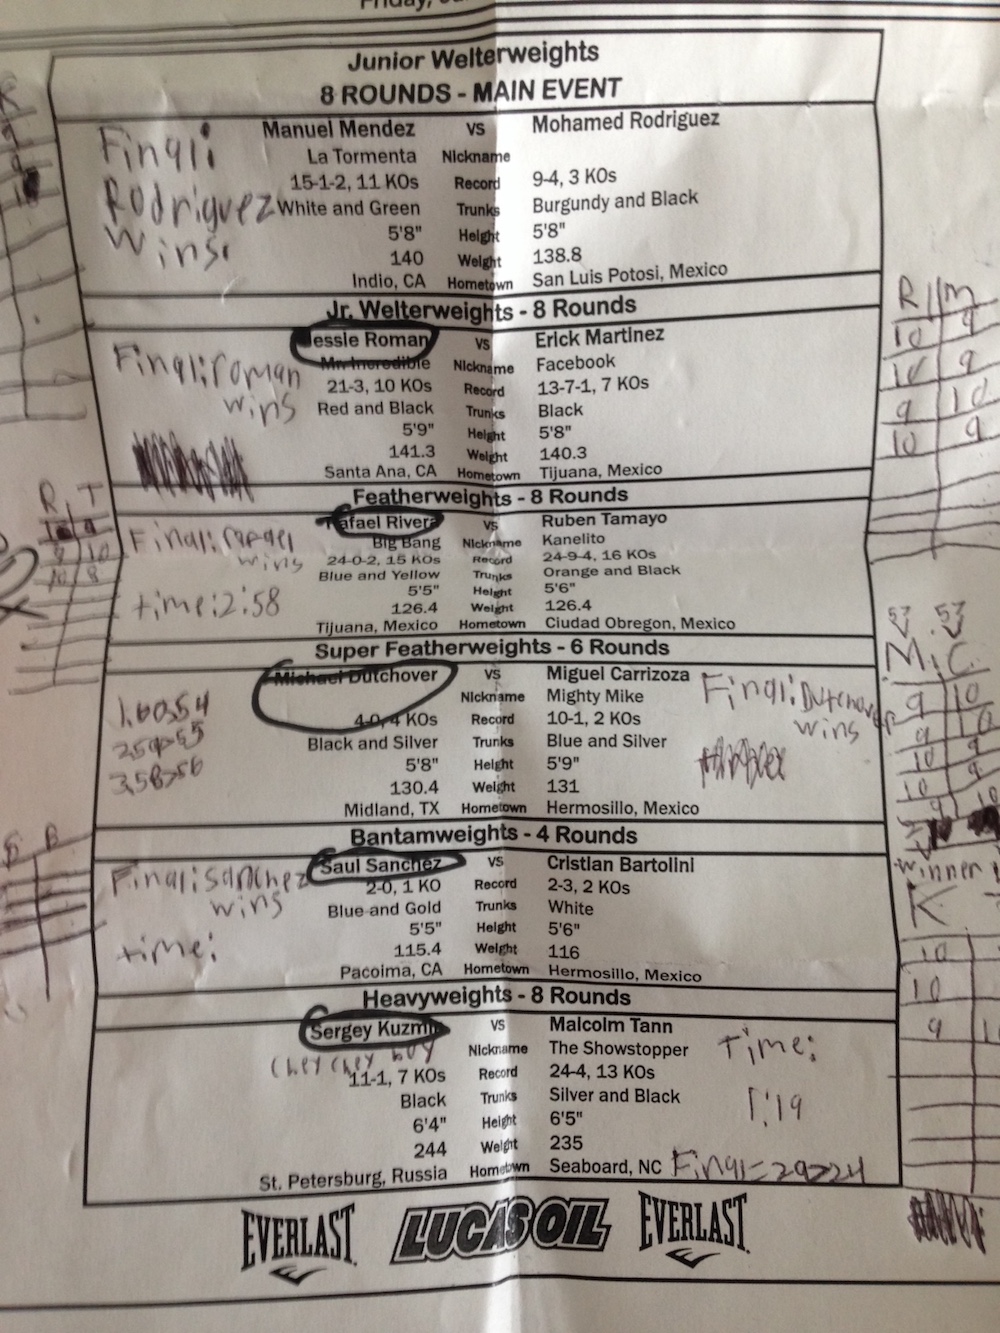 Friday,
Junior Welterweights
8 ROUNDS - MAIN EVENT
Manuel Mendez vs Mohamed Rodriguez
La Tormenta Nickname
15-1-2, 11 KOs Record 9-4, 3 KOs
White and Green Trunks Burgundy and Black
5'8" Height 5'8"
140 Weight 138.8
Indio, CA Hometown San Luis Potosi, Mexico
Final:
Rodriguez
wins.
Jr. Welterweights - 8 Rounds
Jessie Roman vs Erick Martinez
Mr. Incredible Nickname Facebook
21-3, 10 KOs Record 13-7-1, 7 KOs
Red and Black Trunks Black
5'9" Height 5'8"
141.3 Weight 140.3
Santa Ana, CA Hometown Tijuana, Mexico
Final: roman
wins
R M
10 9
10 9
9 10
10 9
Featherweights - 8 Rounds
Rafael Rivera vs Ruben Tamayo
Big Bang Nickname Kanelito
24-0-2, 15 KOs Record 24-9-4, 16 KOs
Blue and Yellow Trunks Orange and Black
5'5" Height 5'6"
126.4 Weight 126.4
Tijuana, Mexico Hometown Ciudad Obregon, Mexico
R T
9 10
10 8
wins
time: 2:58
Super Featherweights - 6 Rounds
Michael Dutchover vs Miguel Carrizoza
Nickname Mighty Mike
4-0, 4 KOs Record 10-1, 2 KOs
Black and Silver Trunks Blue and Silver
5'8" Height 5'9"
130.4 Weight 131
Midland, TX Hometown Hermosillo, Mexico
Final: Dutchover
wins
57 57
M. C.
9 10
10 9
10 9
winner
Bantamweights - 4 Rounds
Saul Sanchez vs Cristian Bartolini
2-0, 1 KO Record 2-3, 2 KOs
Blue and Gold Trunks White
5'5" Height 5'6"
115.4 Weight 116
Pacoima, CA Hometown Hermosillo, Mexico
S B
Final: sanchez
wins
time:
Heavyweights - 8 Rounds
Sergey Kuzmin vs Malcolm Tann
Nickname The Showstopper
11-1, 7 KOs Record 24-4, 13 KOs
Black Trunks Silver and Black
6'4" Height 6'5"
244 Weight 235
St. Petersburg, Russia Hometown Seaboard, NC
chey chey boy
Time:
1:19
Final= 29>24
K
10
10
9
EVERLAST LUCAS OIL EVERLAST